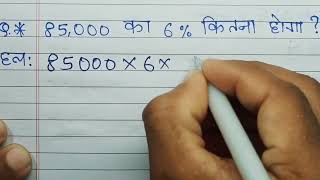 Q.* 85,000 का 6% कितना होगा ?
हल: 85000×6×